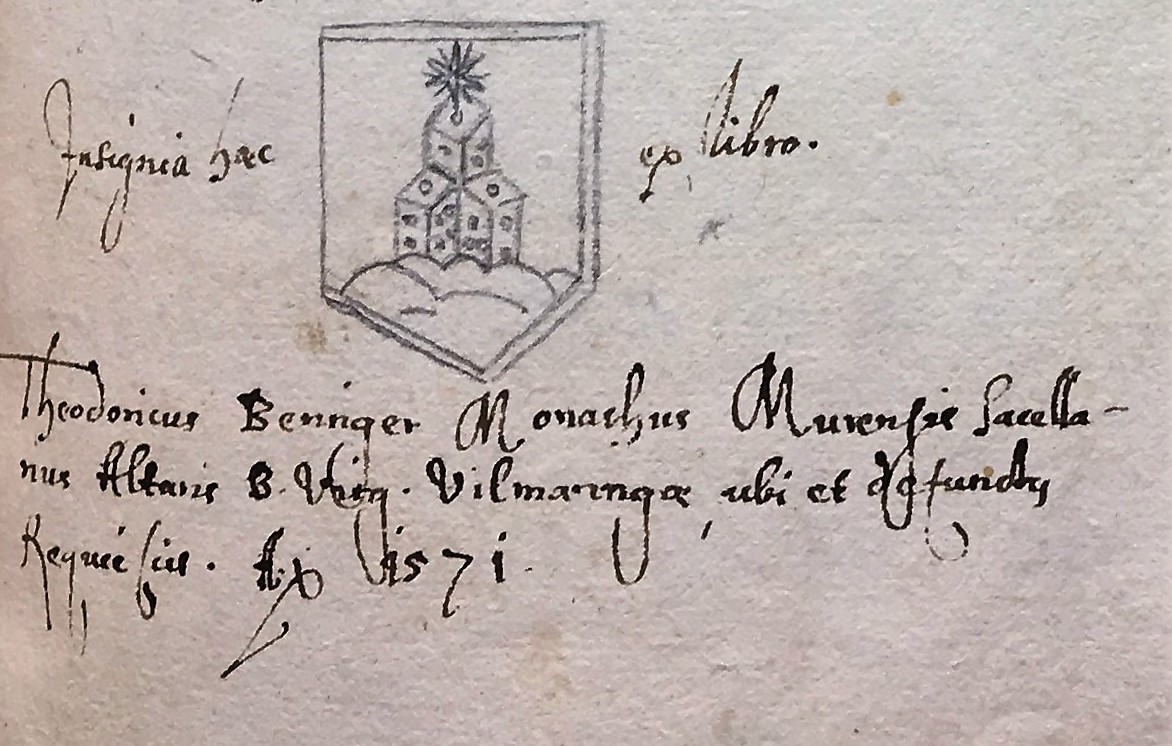 Insignia hæc ex libro.
Theodoricus Beninger Monachus Murensis sacella-
nus Altaris B. Virg. Vilmaringæ, ubi et defunctus
Requiescit. Aº 1571.